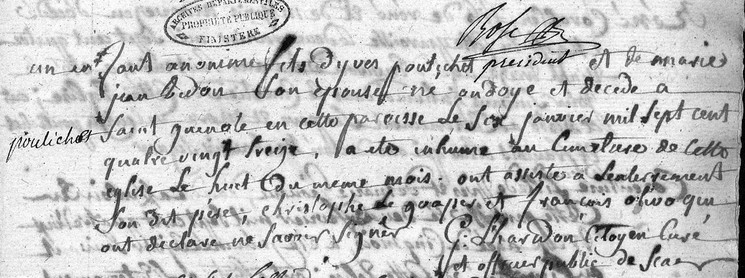 ARCHIVES DÉPARTEMENTALES
PROPRIÉTÉ PUBLIQUE
FINISTERE
president
un enfant anonime fils d'yves poulichet et de marie
jean son epouse né ondoyé et decede a
poulichet
Saint guenole en cette paroisse le six janvier mil sept cent
quatre vingt treize, a eté inhume au Cimetiere de cette
eglise le huit du meme mois. ont assisté a l'enterrement
son dit pere, christophe le goaper et françois olivo qui
ont declaré ne savoir signer G: L'haridon, Citoyen Curé
et officier public de Scaer